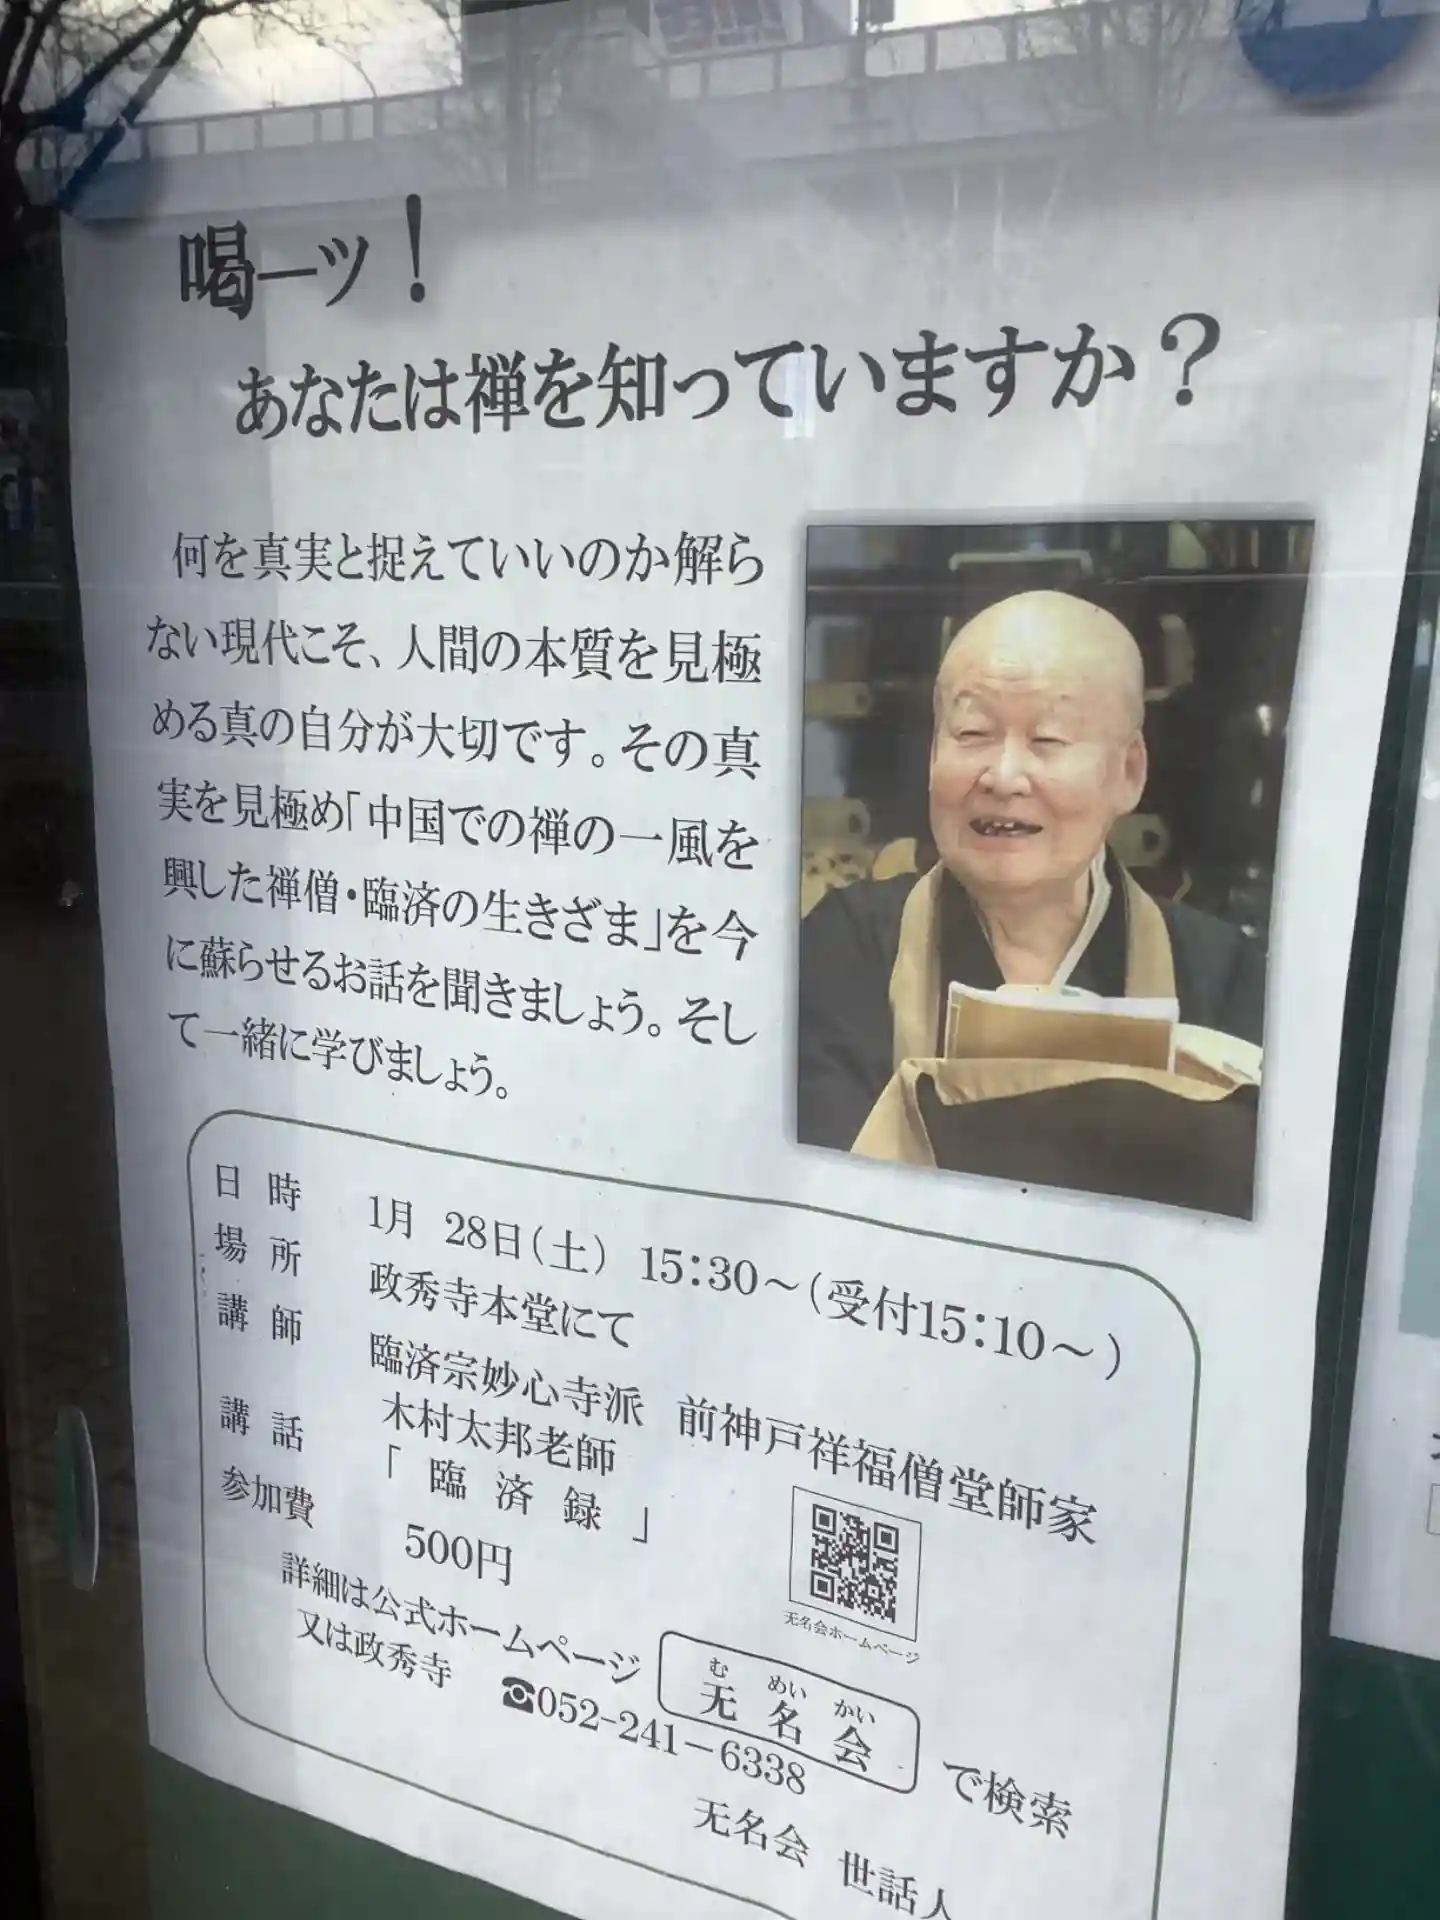 喝ーッ！
あなたは禅を知っていますか？
何を真実と捉えていいのか解ら
ない現代こそ、人間の本質を見極
める真の自分が大切です。その真
実を見極め「中国での禅の一風を
興した禅僧・臨済の生きざま」を今
に蘇らせるお話を聞きましょう。そし
て一緒に学びましょう。
日時 1月 28日（土） 15：30～（受付15：10～）
場所 政秀寺本堂にて
講師 臨済宗妙心寺派 前神戸祥福僧堂師家
木村太邦老師
講話 「臨済録」
参加費 500円
无名会ホームページ
詳細は公式ホームページ 无名会 で検索
む めい かい
又は政秀寺 ☎052-241-6338
无名会 世話人